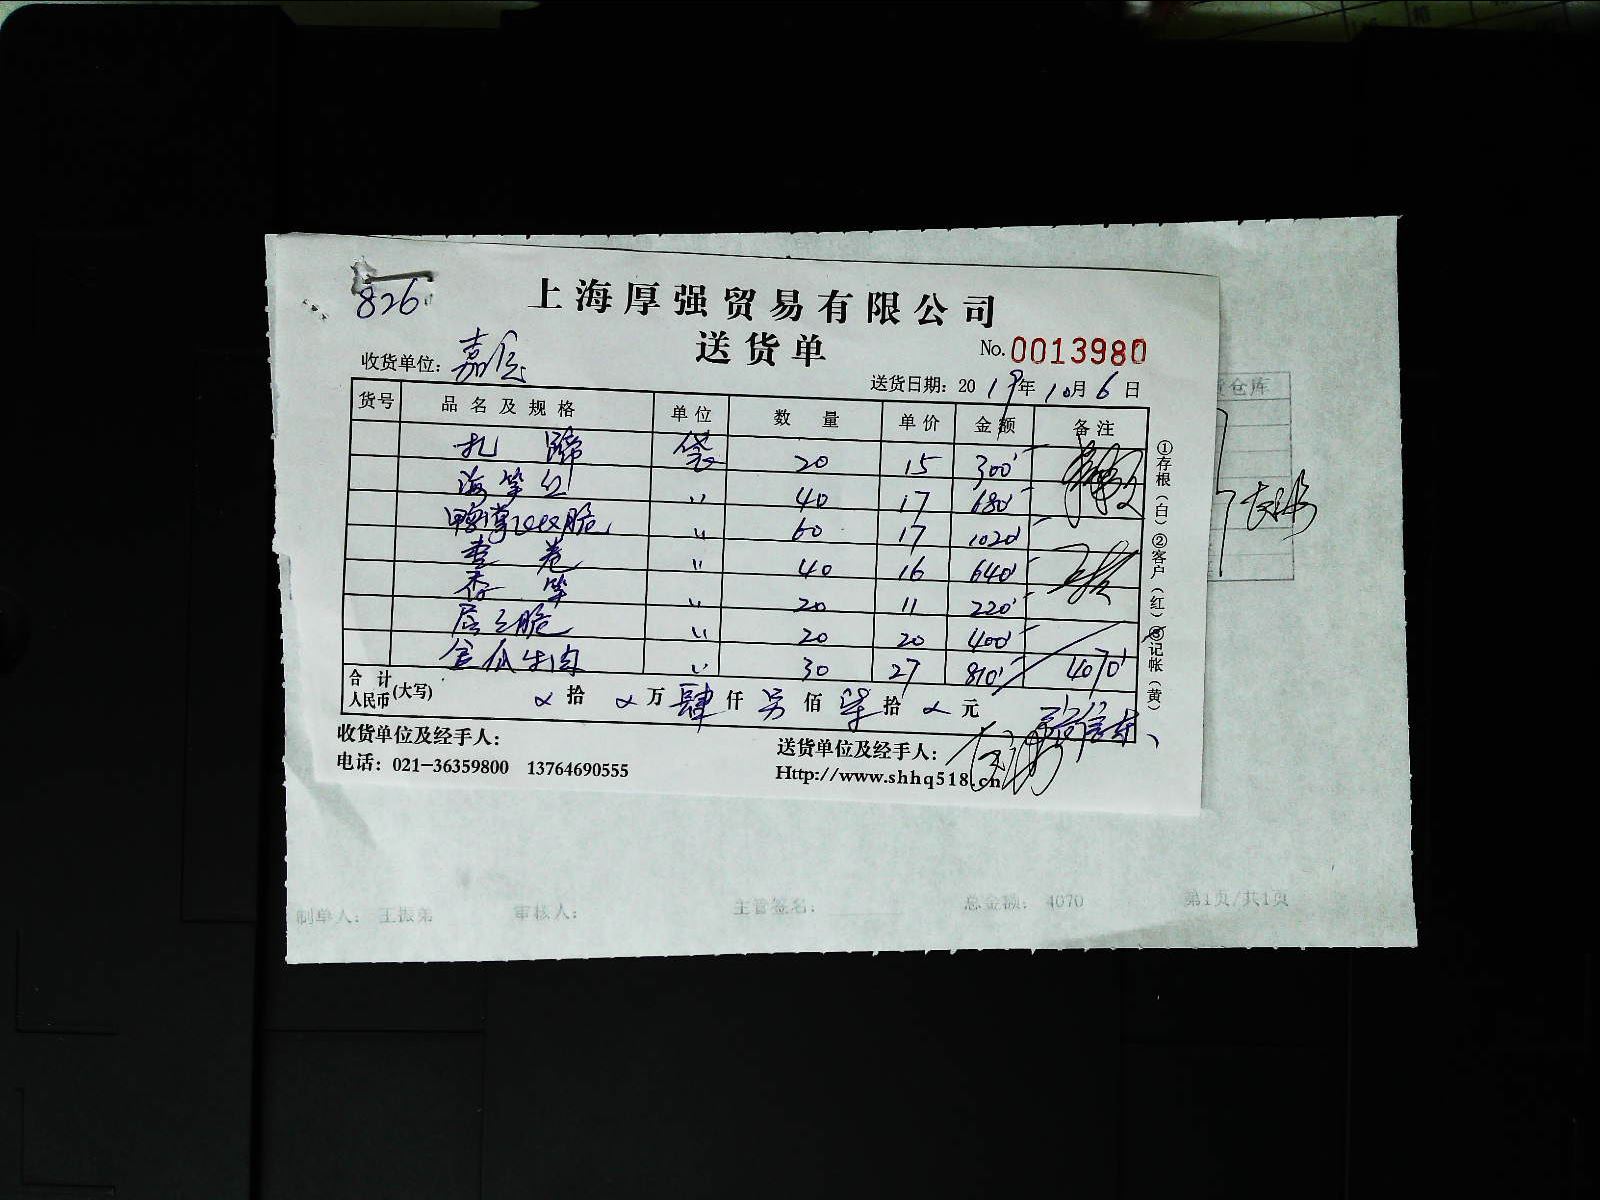 826
上海厚强贸易有限公司
送货单
No. 0013980
收货单位：嘉
送货日期：2019年10月6日
货号 品名及规格 单位 数量 单价 金额 备注
扎蹄 袋 20 15 300
海笋丝 〃 40 17 680
脆 〃 60 17 1020
卷 〃 40 16 640
香笋 〃 20 11 220
脆 〃 20 20 400
金瓜牛肉 〃 30 27 810 4070
合计人民币(大写) 拾 万 肆 仟 另 佰 柒 拾 元
收货单位及经手人：
送货单位及经手人：
电话：021-36359800 13764690555
Http://www.shhq518.cn
①存根（白）②客户（红）③记帐（黄）
仓库
制单人： 王振弟 审核人： 主管签名： 总金额： 4070 第1页/共1页